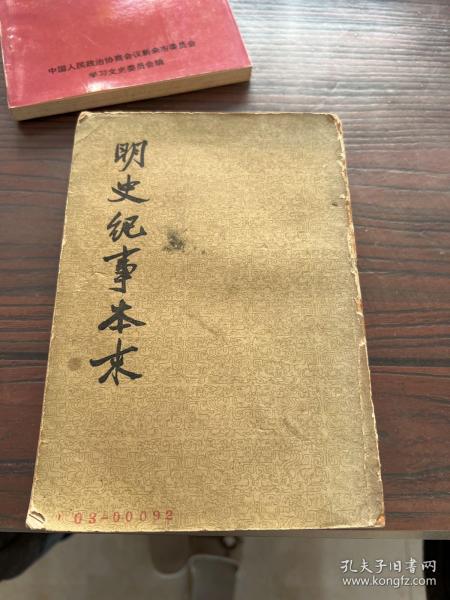 中国人民政治协商会议新余市委员会
学习文史委员会编
明史纪事本末
03-00092
孔夫子旧书网
www.kongfz.com